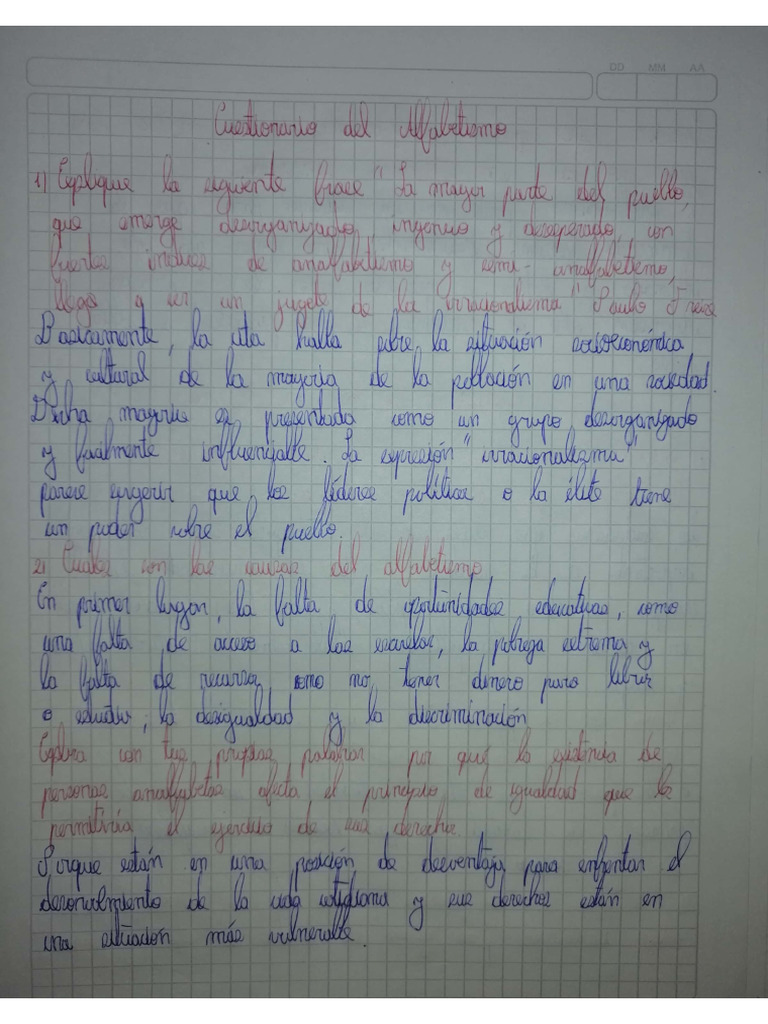 DD MM AA
Cuestionario del Alfabetismo
1) Explique la siguiente frase "La mayor parte del pueblo,
que emerge desorganizado, ingenuo y desesperado, con
fuertes indices de analfabetismo y semi-analfabetismo,
llega a ser un jugete de la irracionalisma" Paulo Freire
Basicamente, la cita habla sobre la situación socioeconómica
y cultural de la mayoria de la población en una sociedad.
Dicha mayoria es presentada como un grupo desorganizado
y facilmente influenciable. La expresión "irracionalisma"
parece sugerir que los líderes políticos o la élite tiene
un poder sobre el pueblo.
2) Cuales son las causas del alfabetismo
En primer lugar, la falta de oportunidades educativas, como
una falta de acceso a las escuelas, la pobreza extrema y
la falta de recursos, como no tener dinero para libros
o estudiar, la desigualdad y la discriminación
Explica con tus propias palabras por qué la existencia de
personas analfabetas afecta el principio de igualdad que les
permitiria el ejercicio de sus derechos.
Porque están en una posición de desventaja para enfrentar el
desenvolvimiento de la vida cotidiana y sus derechos están en
una situación más vulnerable.